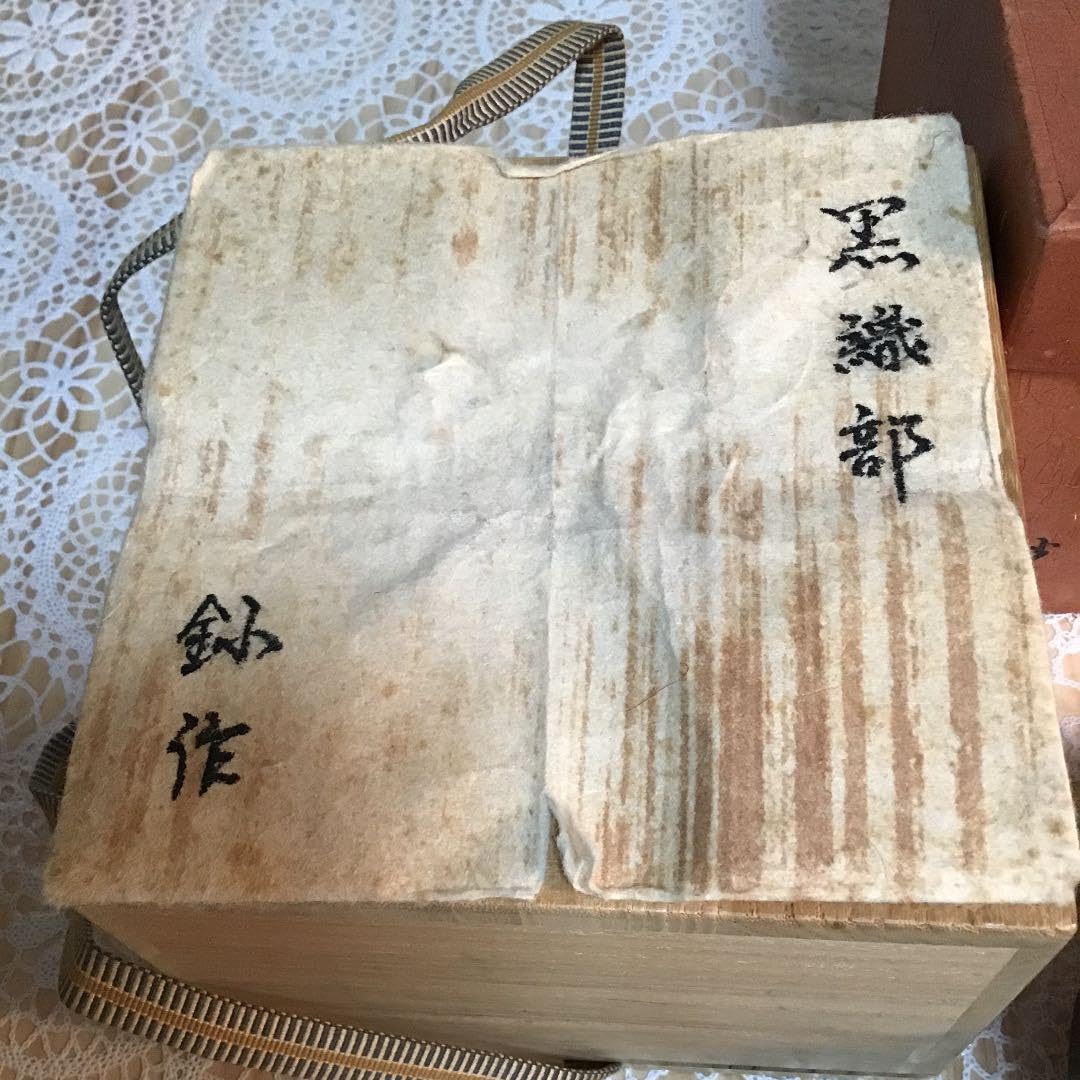 黒織部
鈢作